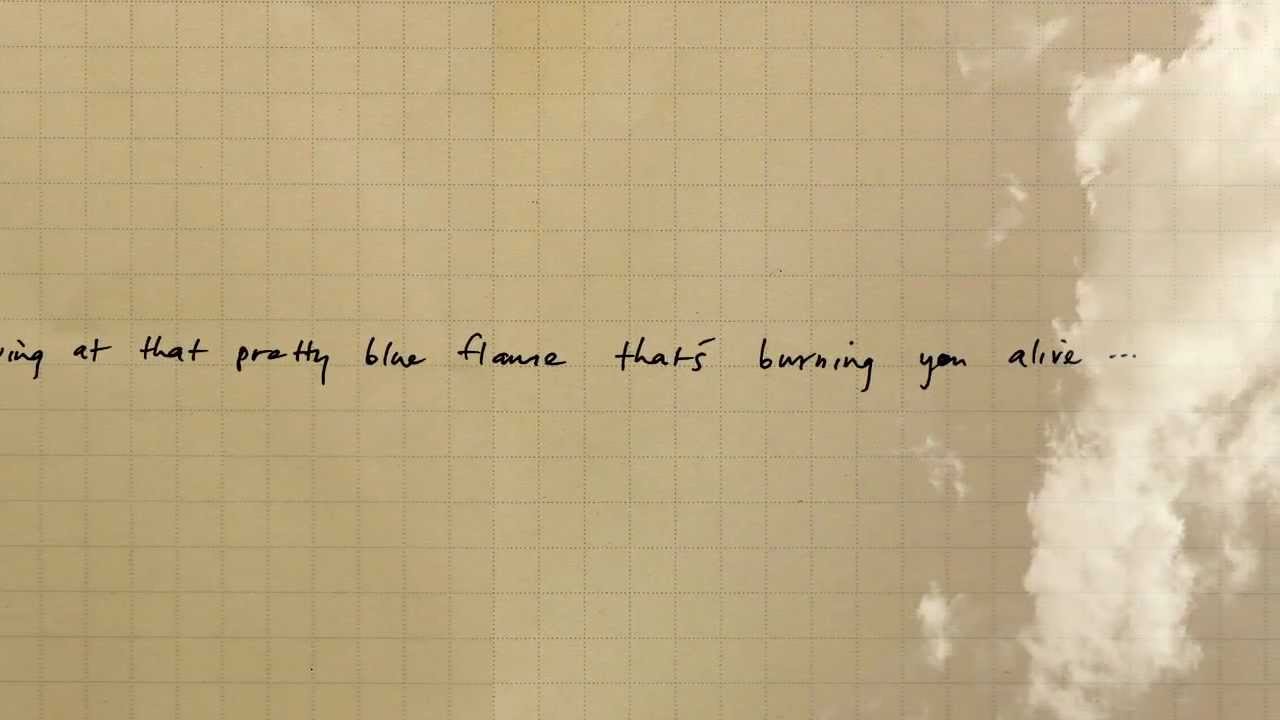 ing at that pretty blue flame that's burning you alive ...